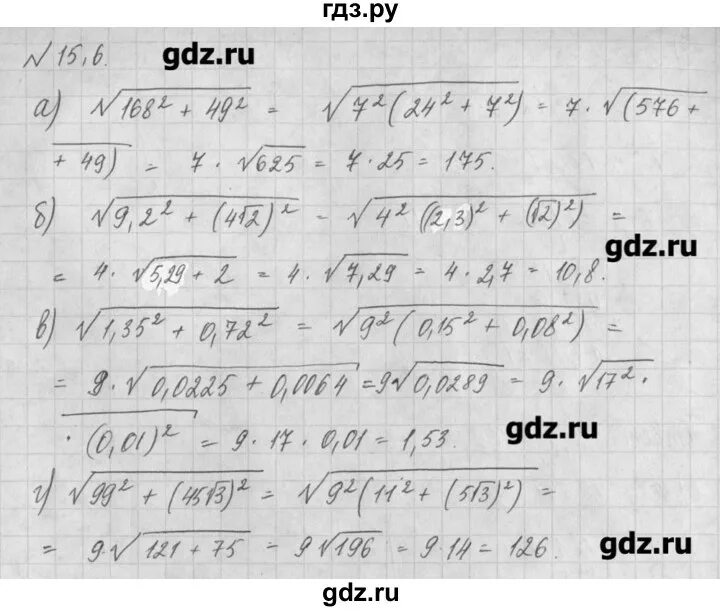 гдз.ру
№ 15,6. gdz.ru
а) √(168² + 49²) = √(7²(24² + 7²)) = 7 · √(576 +
+ 49) = 7 · √625 = 7 · 25 = 175.
б) √(9,2² + (4√2)²) = √(4²((2,3)² + (√2)²)) =
gdz.ru
= 4 · √(5,29 + 2) = 4 · √7,29 = 4 · 2,7 = 10,8.
в) √(1,35² + 0,72²) = √(9²(0,15² + 0,08²)) =
= 9 · √(0,0225 + 0,0064) = 9√0,0289 = 9 · √(17² ·
· (0,01)²) = 9 · 17 · 0,01 = 1,53. gdz.ru
г) √(99² + (45√3)²) = √(9²(11² + (5√3)²)) =
= 9 · √(121 + 75) = 9√196 = 9 · 14 = 126. gdz.ru
gdz.ru